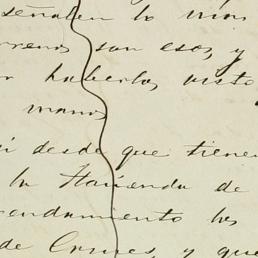 señalen lo mas
rrenos, son esos, y
r haberlos visto
manos
desde que tienen
la Hacienda de
rendamiento los
de Cruces, y que